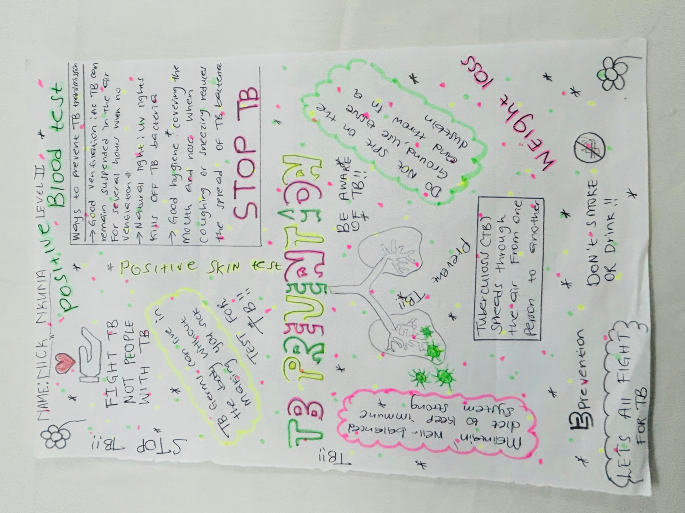 NAME: NICK NKUNA LEVEL II
FIGHT TB
NOT PEOPLE
WITH TB
STOP
TB!!
Positive Blood test
Ways to prevent TB transmission
→ Good ventiration: ins TB can
remain suspended in the air
for several hours with no
ventiration
→ Natural right: UV rights
kills off TB bacteria
→ Good hygiene: covering the
mouth and nose when
coughing or sneezing reduces
the spread of TB bacteria
STOP TB
* Positive skin test
TB Germs can live in
the body without
making you sick
TEST FOR
TB!!
TB PREVENTION
TB!!
BE AWARE
OF TB!!
DO NOT spit on the
Ground use tissue
and throw in a
dustbin
Prevent
TB!!
Maintain well-balanced
diet to keep immune
system strong
Weight loss
Tuberculosis (TB)
Speeds through
the air From one
Person to another
TB Prevention
DON'T SMOKE
OR DRINK!!
LETS ALL FIGHT
FOR TB